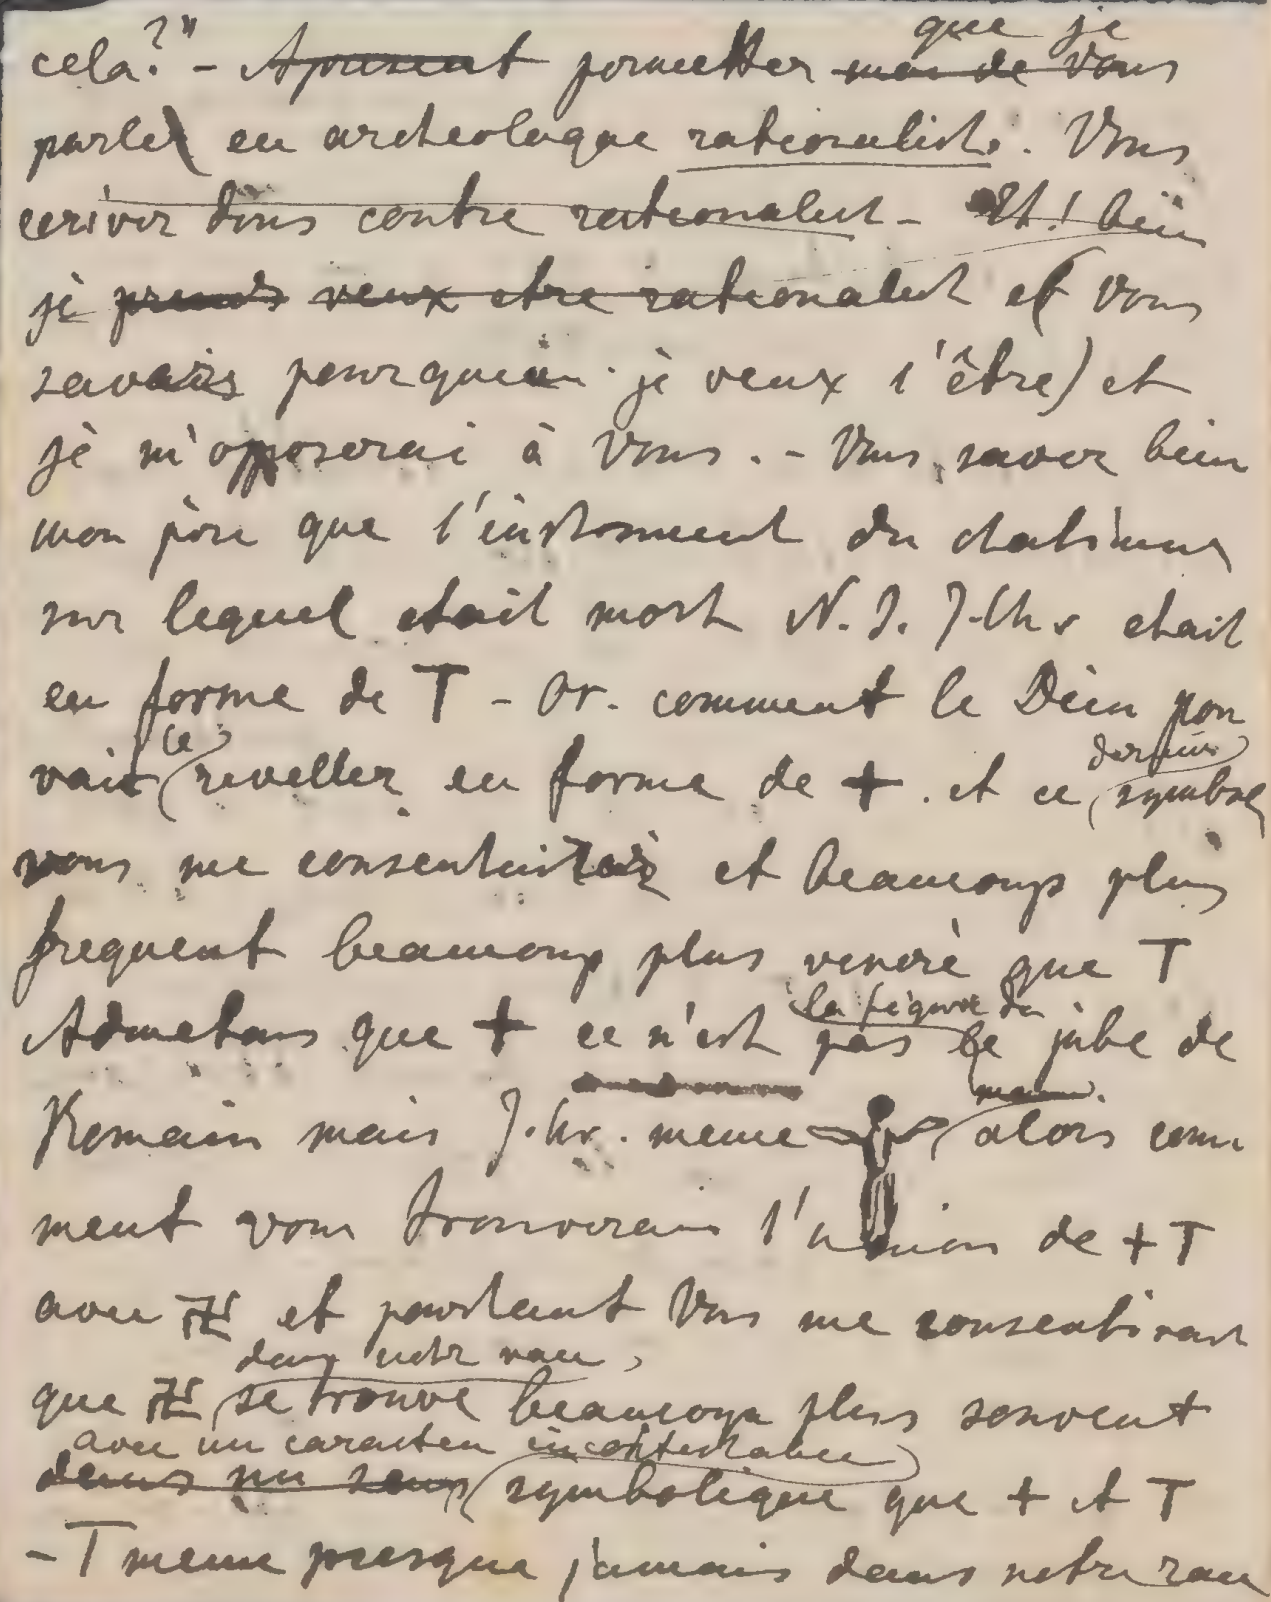 cela?" – Apresent permetter que je moi de vous
parler en archeologue rationaliste. Vous
ecriver dons contre rationalist – Et! bien
je prends veux etre rationalist et (vous
savais pourquoi je veux l'être) et
je m'opposerai à vous. – Vous saver bien
mon père que l'instrument du
sur lequel etait mort N. S. J. Chr etait
en forme de T – Or. comment le Dieu pou
vait ce reveller en forme de + . et ce dernier symbole
vous me et beaucoup plus
frequent beaucoup plus veneré que T
Admetons que + ce n'est pas la figure du le jube de
Romain mais J. Chr. meme alors com
ment vous l'union de + T
avec 卍 et pourtant Vous me
que 卍 dans notre race, se trouve beaucoup plus souvent
avec un caracter incontestable
dans un sens symbolique que + et T
– T meme presque jamais dans notre race